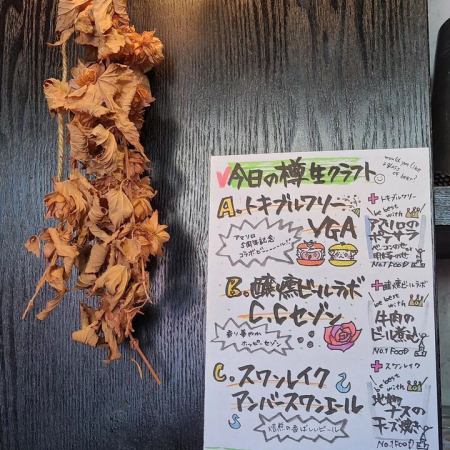 今日の樽生クラフト
would you like
a glass
of beer?
A.トキブルワリー
VGA
アマリロ
5周年記念
コラボビール!!
+トキブルワリー
we best
with
アペリロの
NO.1 FOOD
B.醸燻ビールラボ
C.Cセゾン
香り華やか
ホッピーセゾン
+醸燻ビールラボ
we best
with
牛肉の
ビール煮込
NO.1 FOOD
C.スワンレイク
アンバースワンエール
焙煎の香ばしいビール
+スワンレイク
we best
with
地物
ナスの
チーズ焼き
NO.1 FOOD